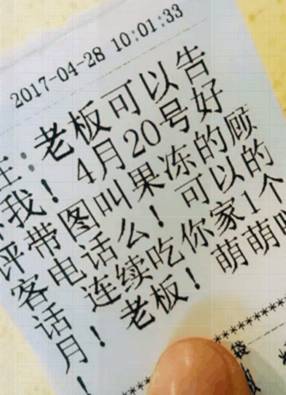 2017-04-28 10:01:33
:老板可以告
我!4月20号好
评带图叫果冻的顾
客电话么!可以的
话!连续吃你家1个
月!老板!萌萌
!
**********